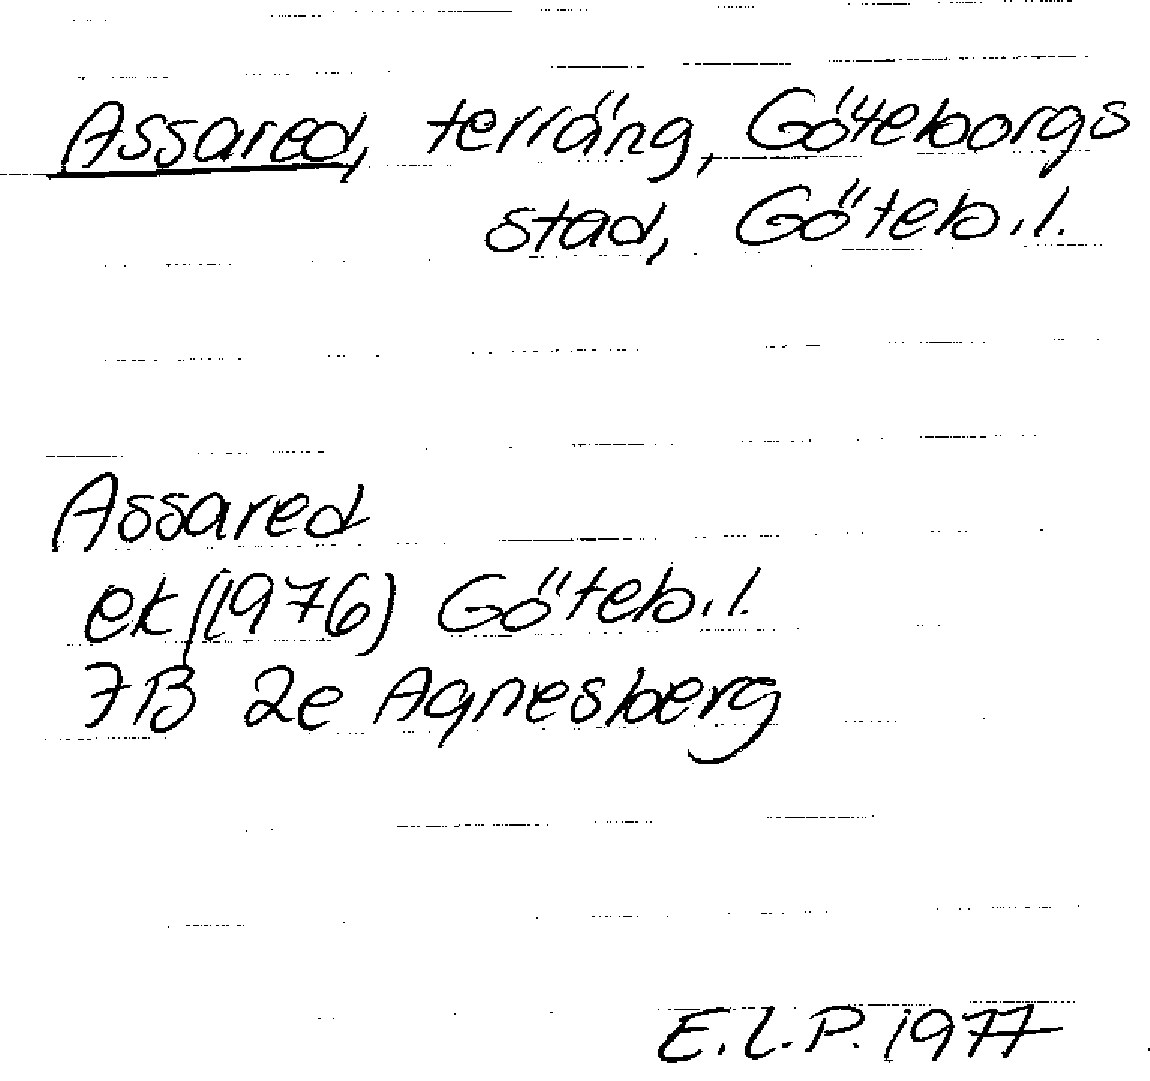 Assared, terräng, Göteborgs
stad, Göteb.l.
Assared
ek (1976) Göteb.l.
7B 2e Agnesberg
E.L.P. 1977